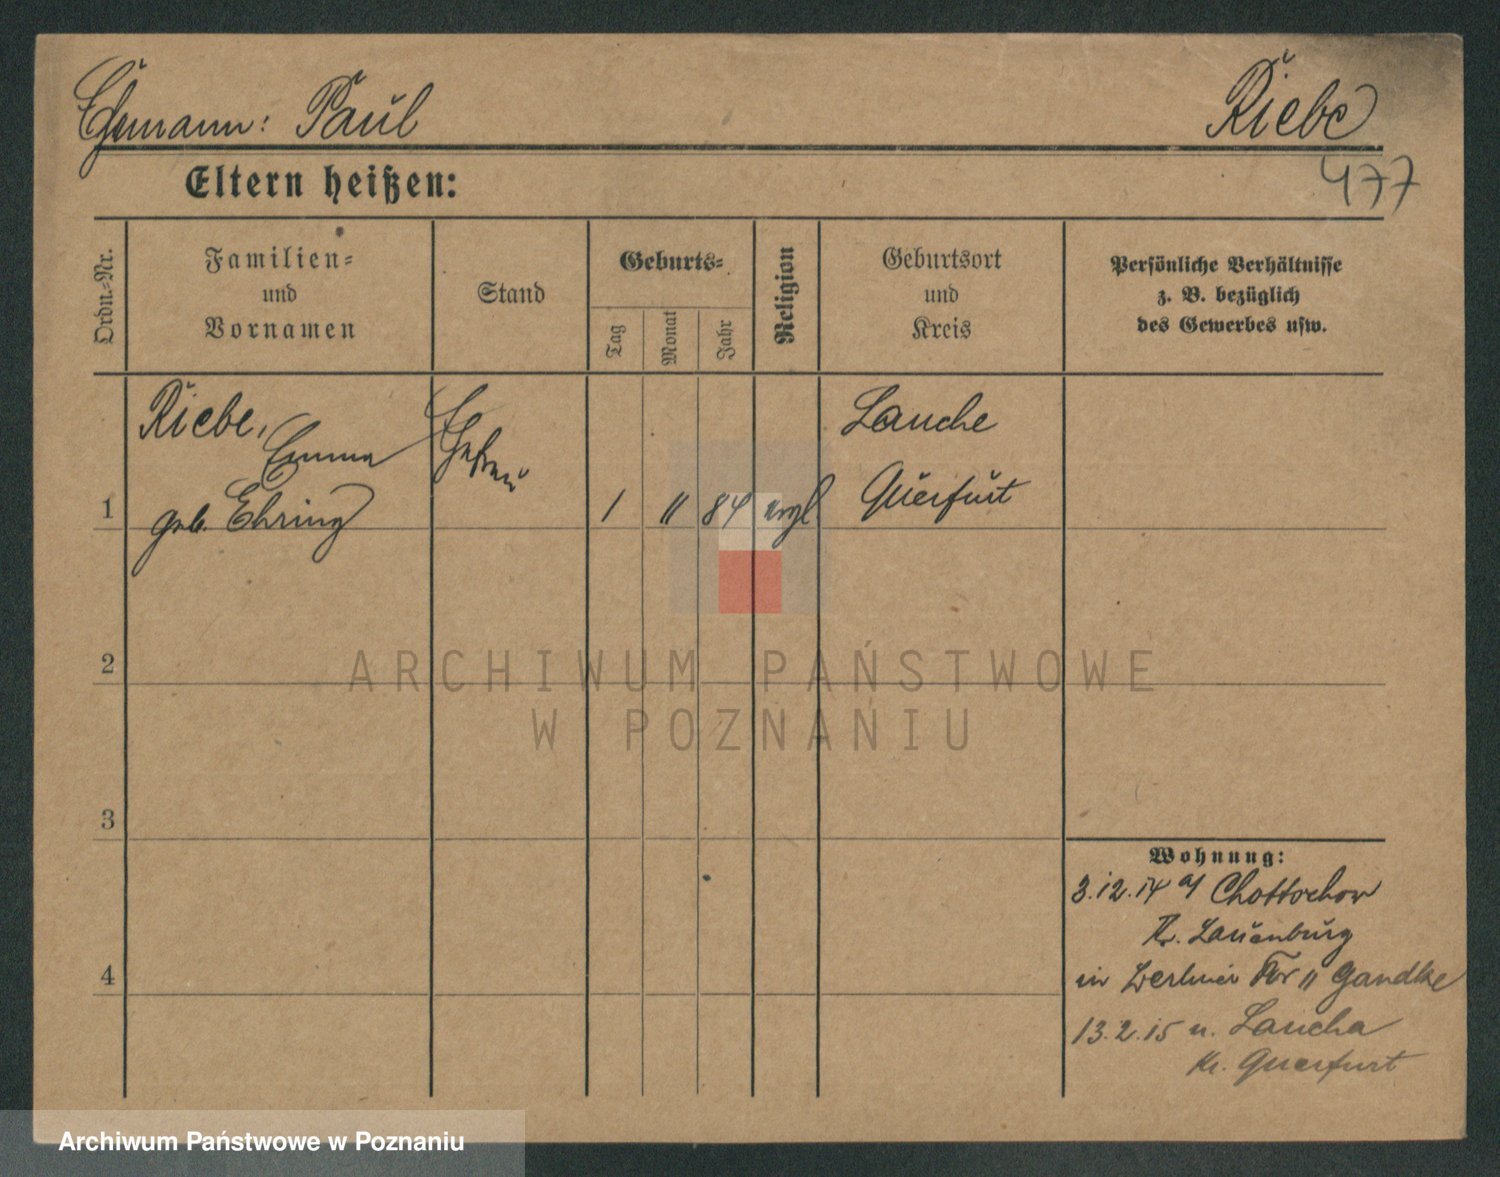 Ehemann: Paul Riebe
Eltern heißen:
477
Ordn.-Nr.
Familien-
und
Vornamen
Stand
Geburts-
Tag
Monat
Jahr
Religion
Geburtsort
und
Kreis
Persönliche Verhältnisse
z. B. bezüglich
des Gewerbes usw.
Riebe,
Emma
geb. Ehring
Ehefrau
1
1 " 84 evgl
Lauche
Querfurt
2
3
4
Wohnung:
3.12.14 Chottschow
Kr. Lauenburg
in Berliner Tor " Gandke
13.2.15 n. Laucha
Kr. Querfurt
ARCHIWUM PAŃSTWOWE
W POZNANIU
Archiwum Państwowe w Poznaniu